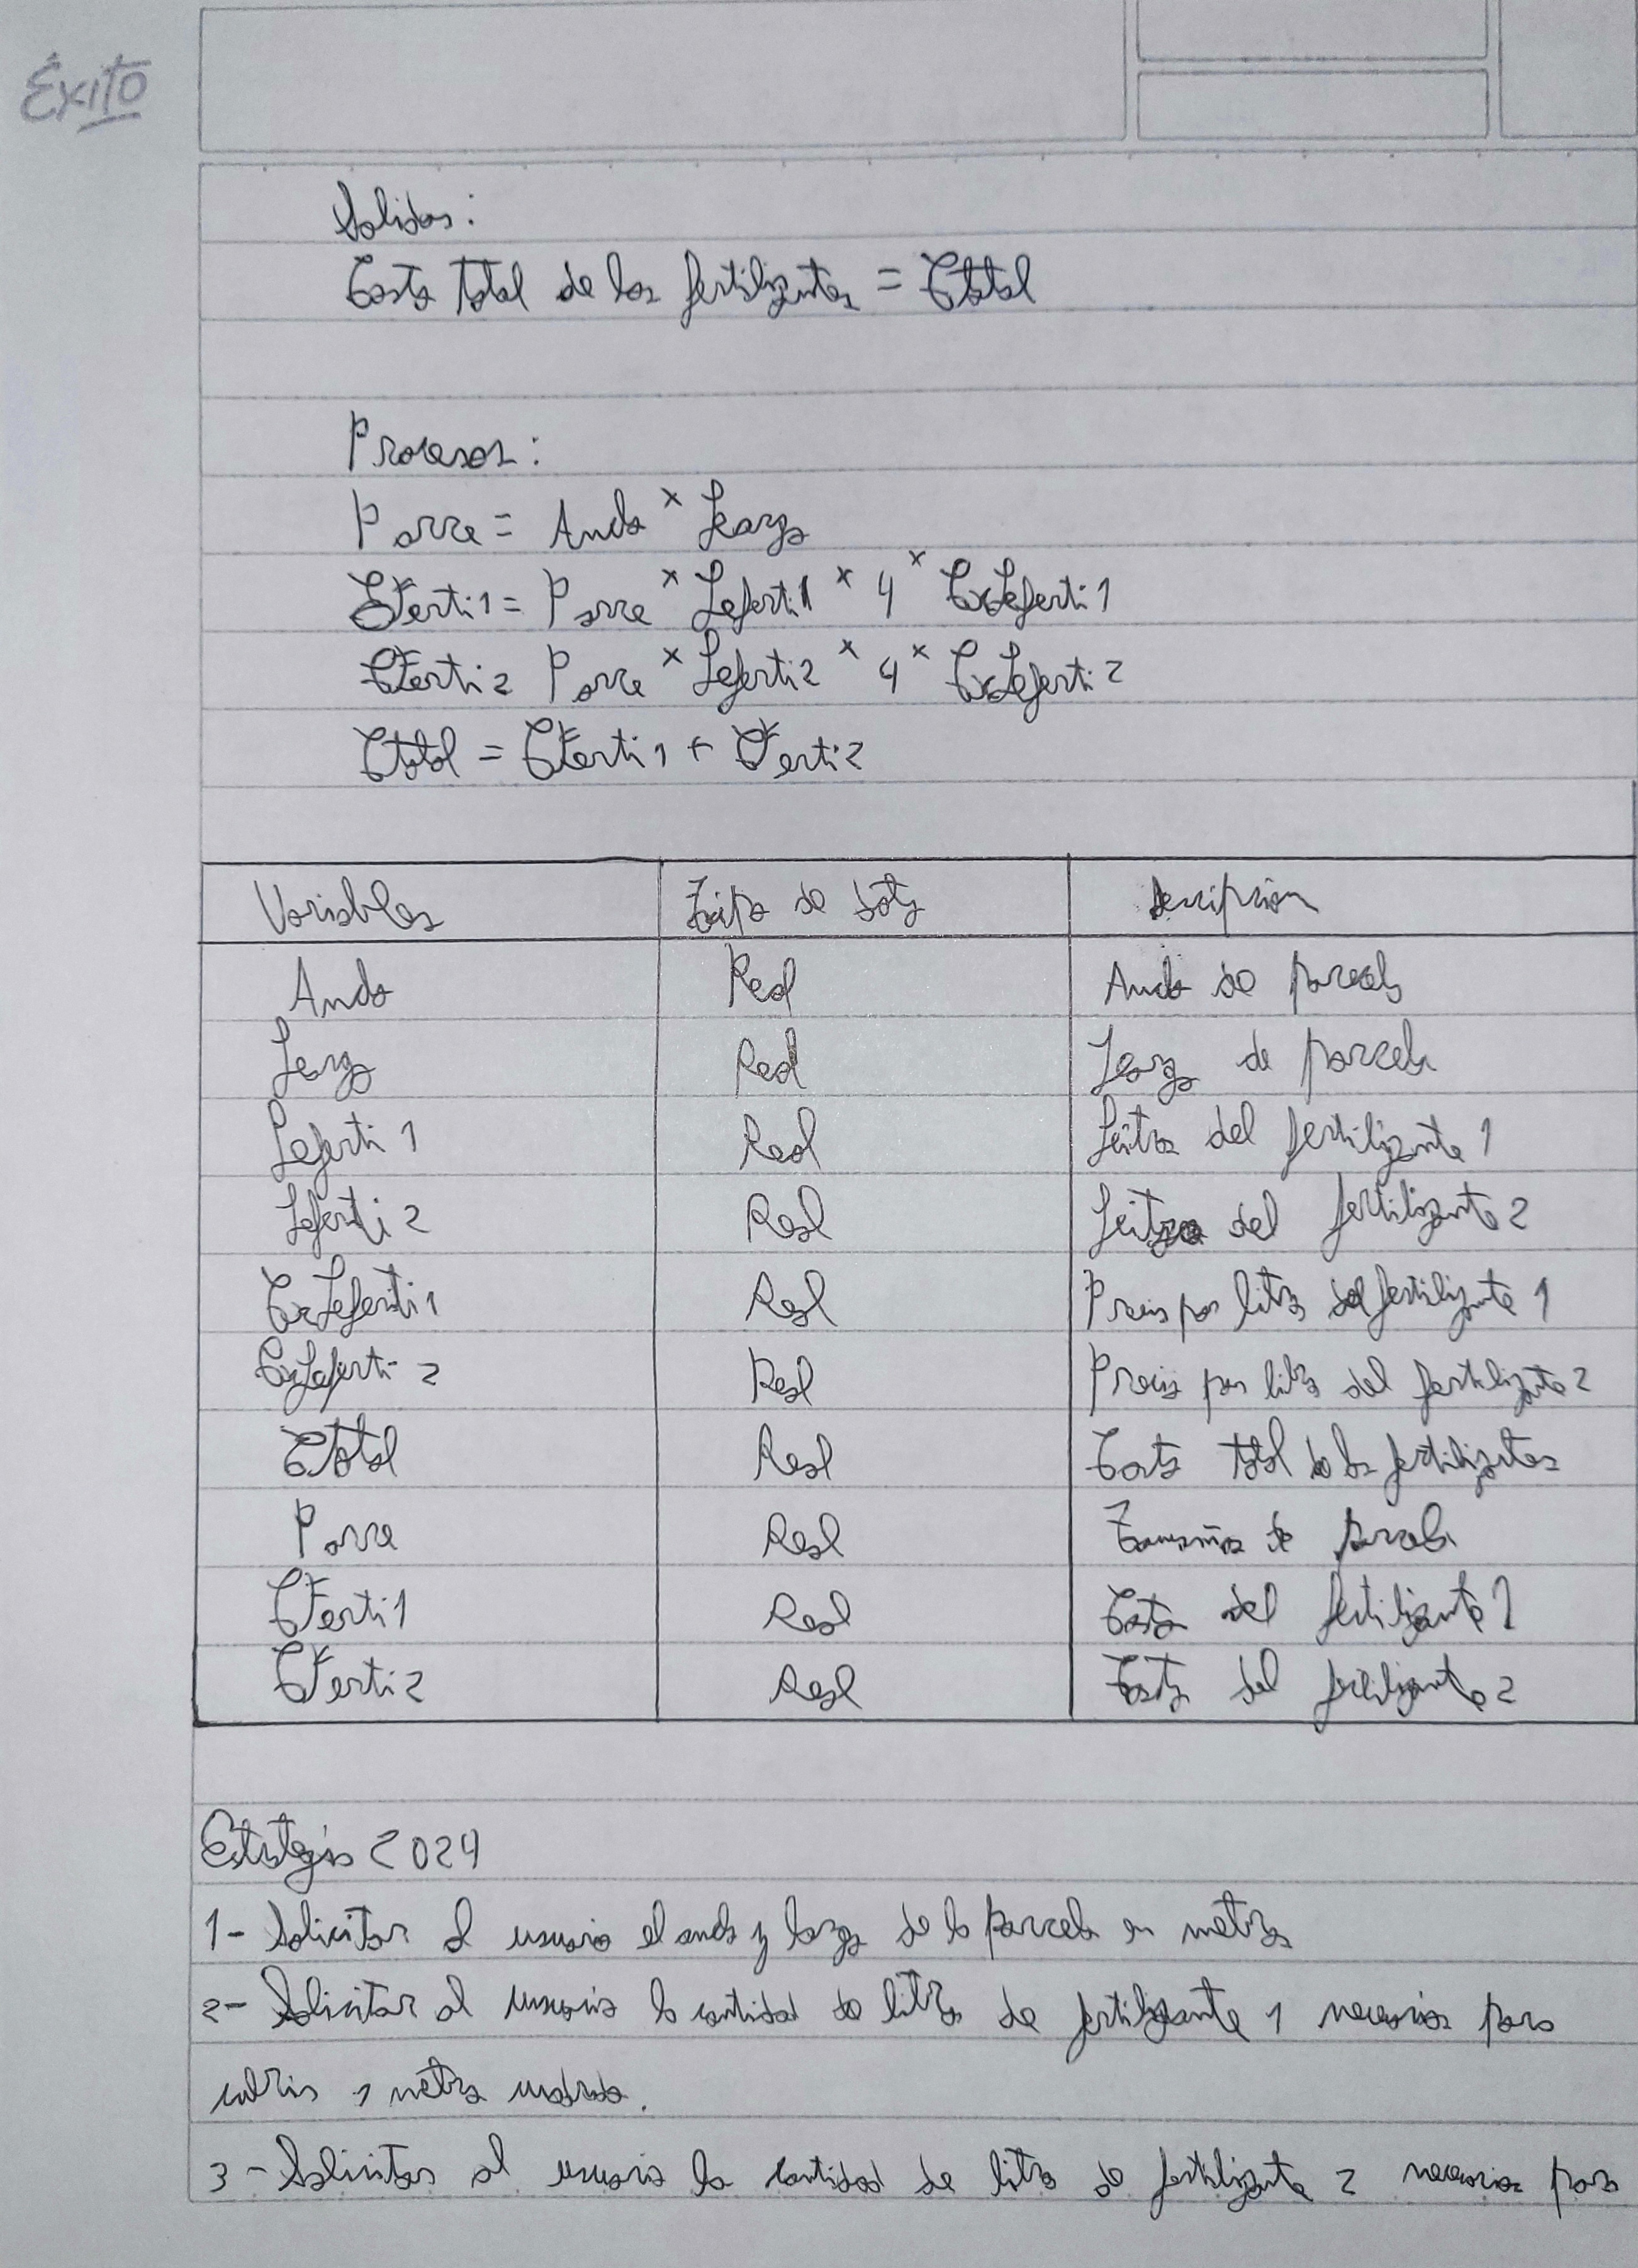 Éxito
Salidas:
Costo total de los fertilizantes = Ctotal
Procesos:
Parce = Ancho × Largo
CFerti1 = Parce × Leferti1 × 4 × CxLeferti1
CFerti2 Parce × Leferti2 × 4 × CxLeferti2
Ctotal = CFerti1 + CFerti2
Variables Tipo de dato Descripción
Ancho Real Ancho de parcela
Largo Real Largo de parcela
Leferti1 Real Litros del fertilizante 1
Leferti2 Real Litros del fertilizante 2
CxLeferti1 Real Precio por litro del fertilizante 1
CxLeferti2 Real Precio por litro del fertilizante 2
CTotal Real Costo total de los fertilizantes
Parce Real Tamaño de parcela
CFerti1 Real Costo del fertilizante 1
CFerti2 Real Costo del fertilizante 2
Estrategia 2024
1- Solicitar al usuario el ancho y largo de la parcela en metros
2- Solicitar al usuario la cantidad de litros de fertilizante 1 necesarios para
cubrir 1 metro cuadrado.
3- Solicitar al usuario la cantidad de litros de fertilizante 2 necesarios para